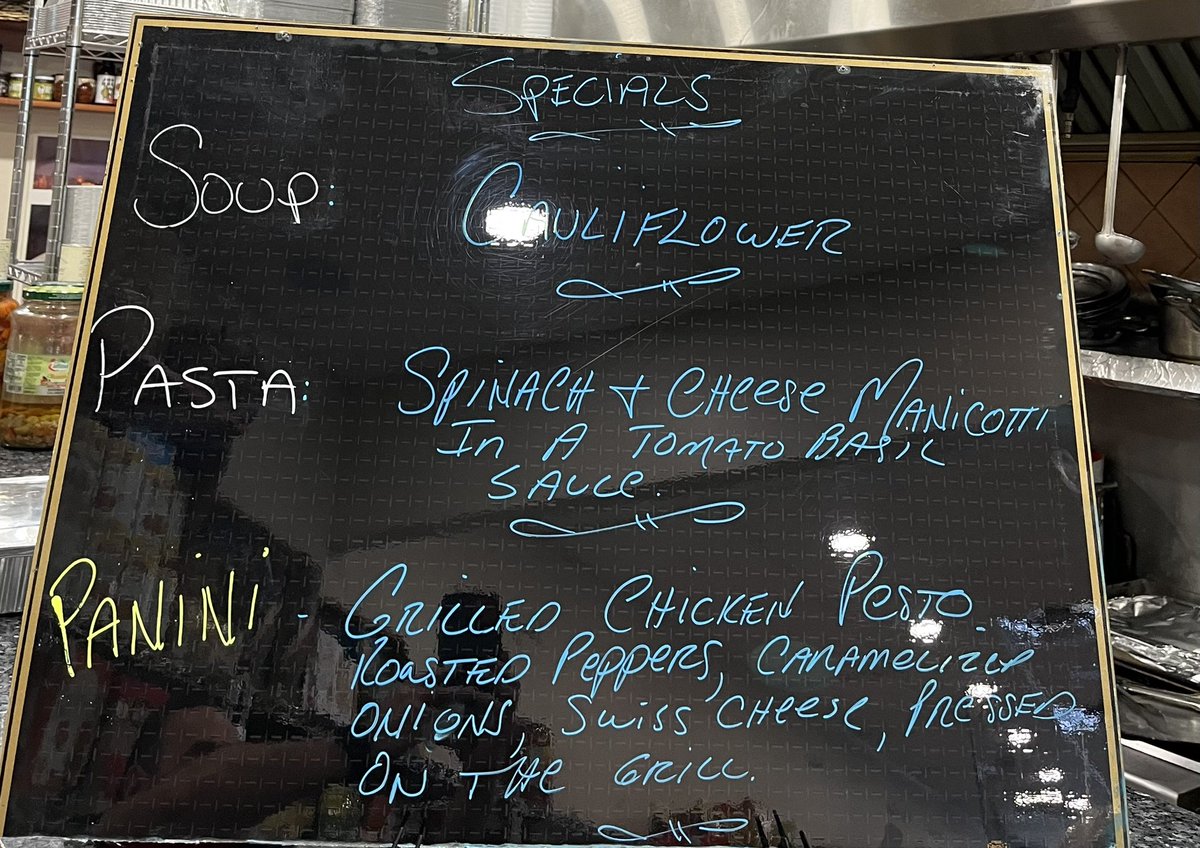 SPECIALS
SOUP: CAULIFLOWER
PASTA: SPINACH + CHEESE MANICOTTI
IN A TOMATO BASIL
SAUCE.
PANINI - GRILLED CHICKEN PESTO.
ROASTED PEPPERS, CARAMELIZED
ONIONS, SWISS CHEESE, PRESSED
ON THE GRILL.